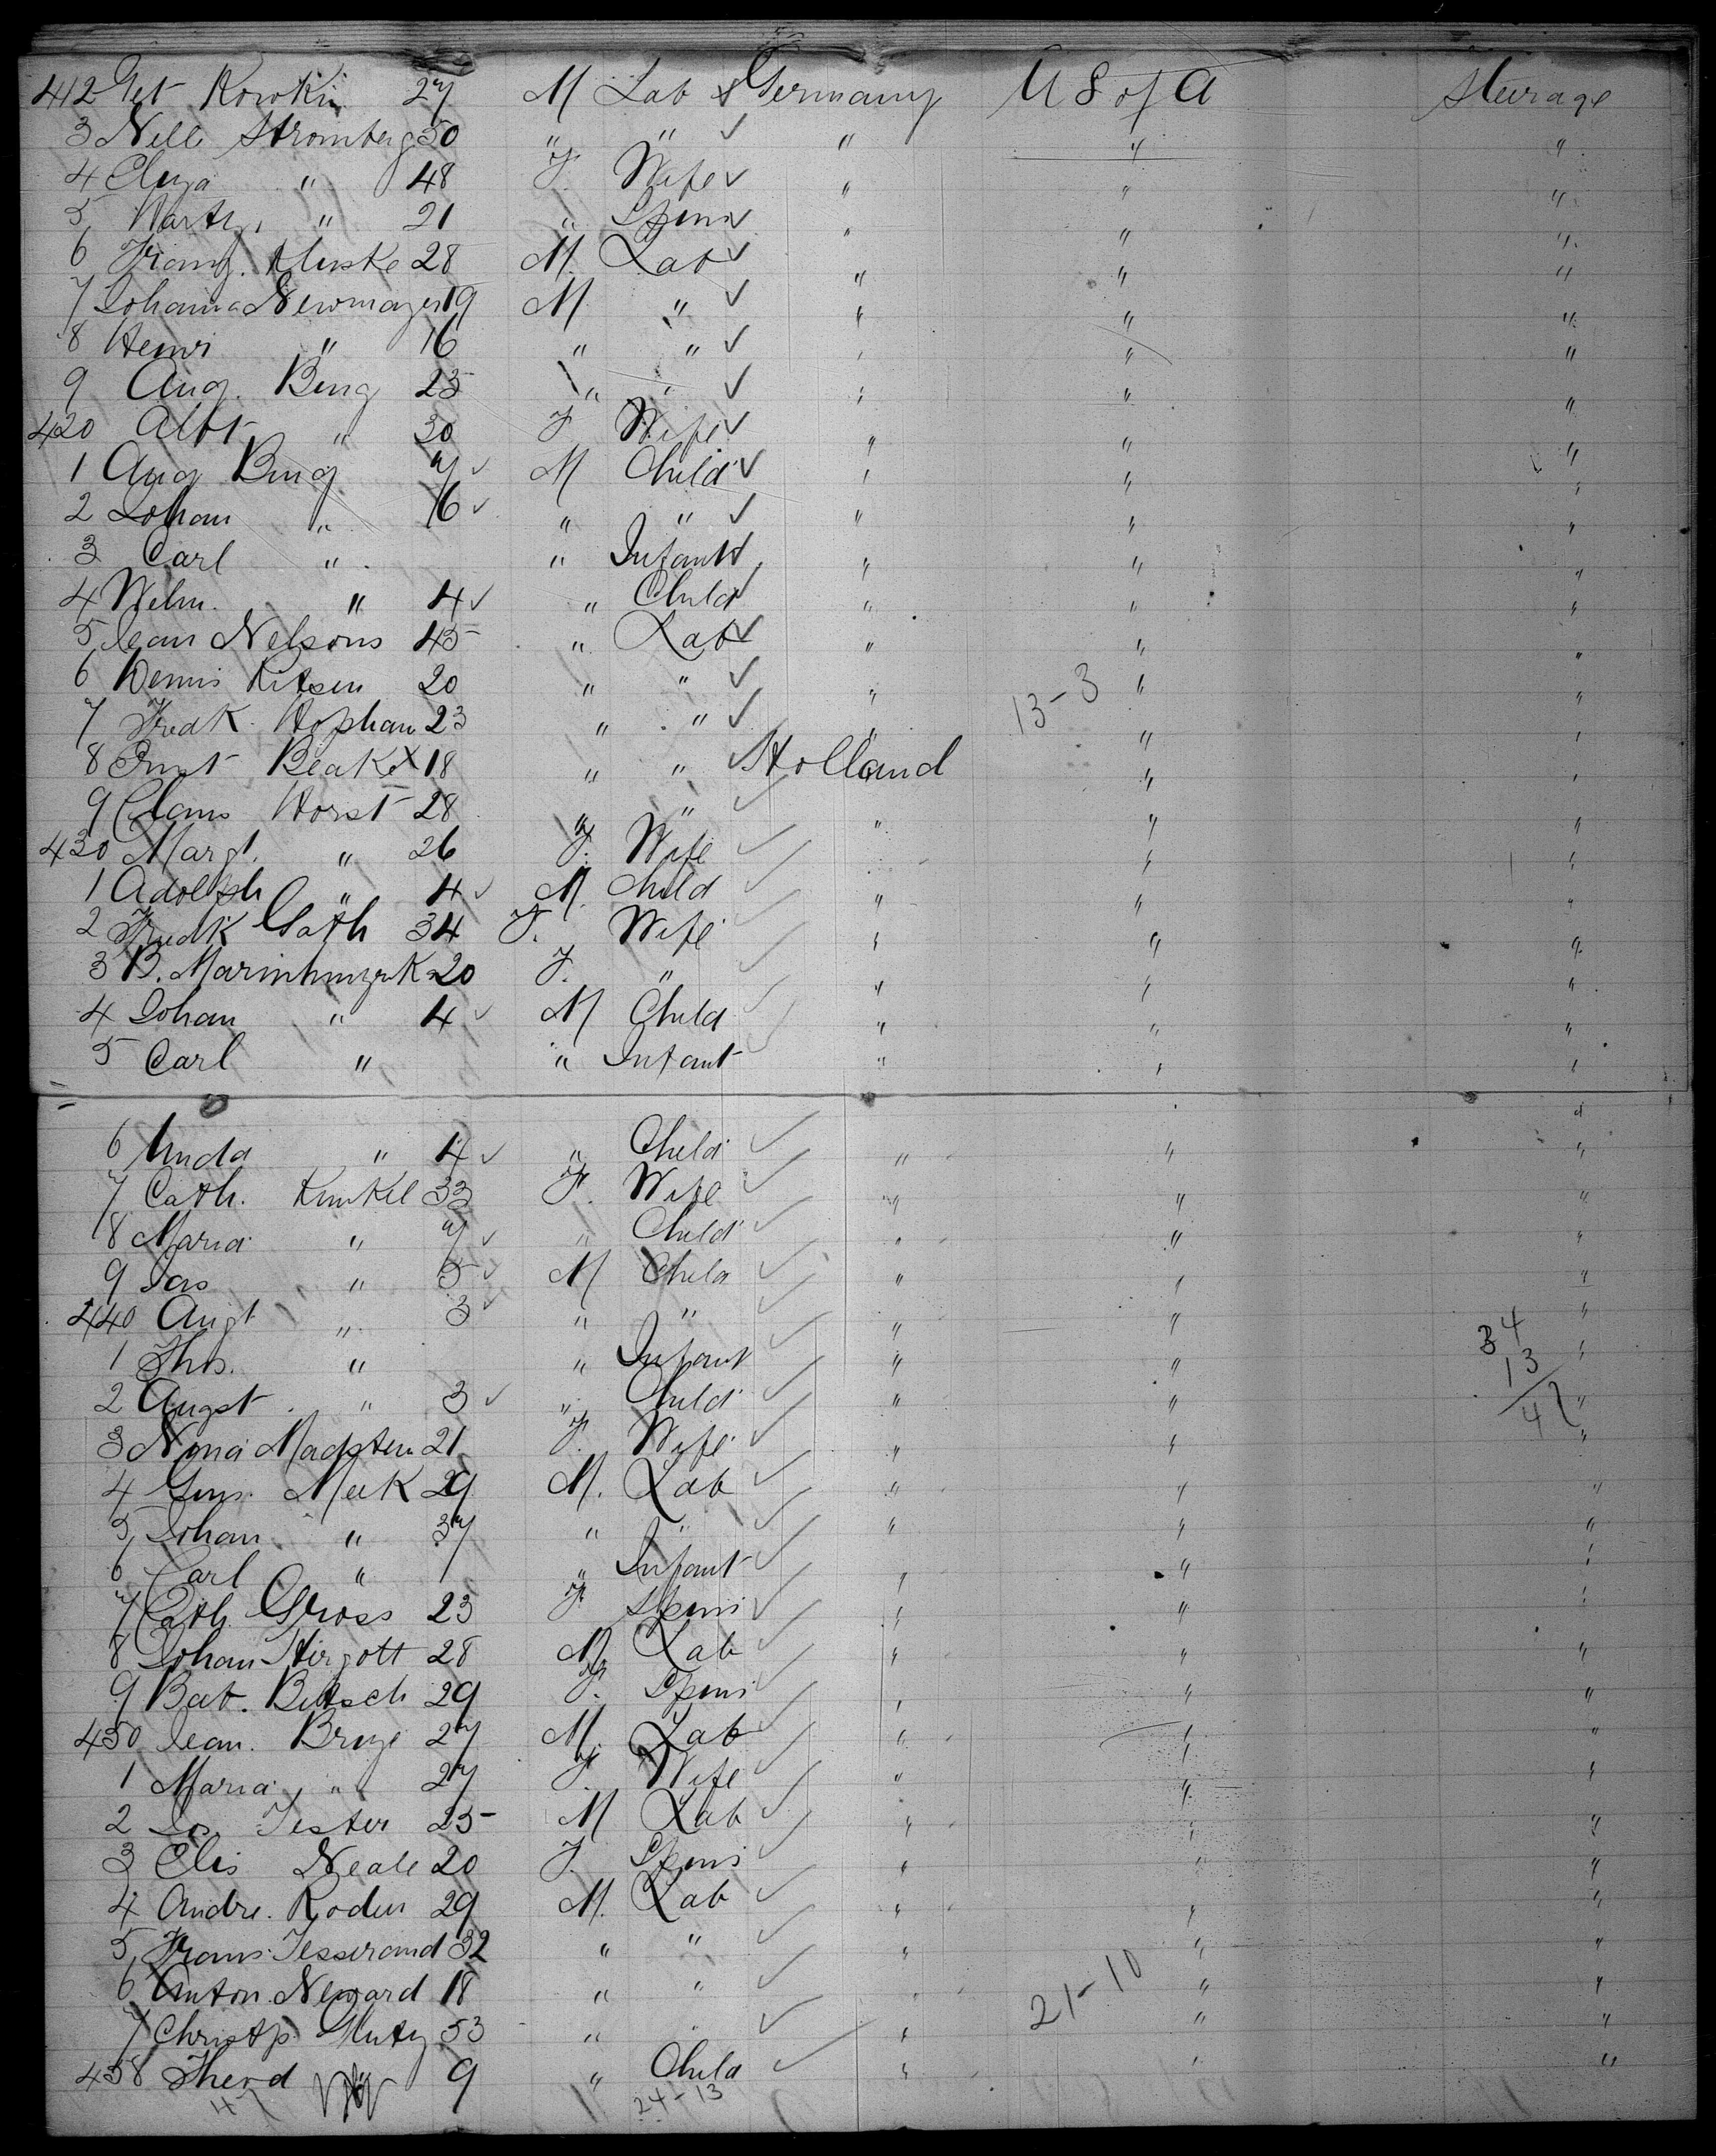 412 Get Kowkin 27 M Lab Germany U S of A Steerage
3 Nell Stromberg 50 " " " " "
4 Eliza " 48 F. Wife " " "
5 " 21 " Spins " " "
6 Franz. Kluske 28 M. Lab " " "
7 Johanna Newmayer 19 M " " " "
8 Henri " 16 " " " " "
9 Aug. Bing 25 " " " " "
420 Albt " 30 F Wife " " "
1 Aug Bing 7 M Child " " "
2 Johan " 6 " " " " "
3 Carl " " Infant " " "
4 Welm. " 4 " Child " " "
5 Jean Nelsons 45 " Lab " " "
6 Dennis Kitsen 20 " " " 13-3 " "
7 Fredk. Hophan 23 " " " " "
8 Ernst Beake X 18 " " Holland " "
9 Claus Horst 28 " " " " "
430 Margt. " 26 F. Wife " " "
1 Adolph " 4 M. Child " " "
2 Fredk Gath 34 F. Wife " " "
3 B. 20 F. " " " "
4 Johan " 4 M Child " " "
5 Carl " " Infant " " "
6 Linda " 4 " Child " " "
7 Cath. Kunkel 33 F. Wife " " "
8 Maria " 7 " Child " " "
9 Jas " 5 M Child " " "
440 Augt " 3 " " " " "
1 Thos. " " Infant " " "
34
13
47
2 Augst " 3 " Child " " "
3 Nina Madsten 21 F. Wife " " "
4 Gens. Meek 29 M. Lab " " "
5 Johan " 37 " " " " "
6 Carl " " Infant " " "
7 Cath. Gross 23 F. Spins " " "
8 Johan Hirgott 28 M. Lab " " "
9 Bab. Bitsch 29 F. Spins " " "
450 Jean. Bruge 27 M. Lab " " "
1 Maria " 27 F. Wife " " "
2 Jos. Tester 25 M Lab " " "
3 Elis Neale 20 F. Spins " " "
4 Andre. Roden 29 M. Lab " " "
5 Frans. Tesserand 32 " " " " "
6 Anton. Neward 18 " " " 21-10 " "
7 Christp. Glutz 53 " " " "
458 Therd 9 " Child " " "
47 24-13